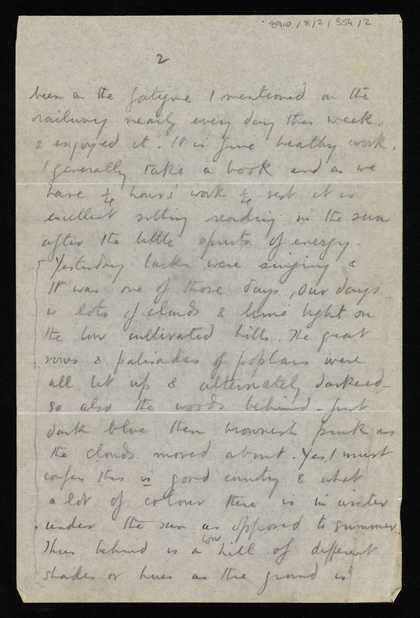 8910/8/2/554/2
2
been on the fatigue I mentioned on the
railway nearly every day this week.
& enjoyed it. It is fine healthy work.
I generally take a book and as we
have ¾ hours' work ¼ rest it is
excellent sitting reading in the sun
after the little spurts of energy.
Yesterday larks were singing &
it was one of those days, Our days
w lots of clouds & lime light on
the low cultivated hills. The great
rows & palisades of poplars were
all lit up & alternately darkened
so also the woods behind - first
dark blue then brownish pink as
the clouds moved about. Yes, I must
confess this is good country & what
a lot of colour there is in winter
under the sun as opposed to summer
Thus behind is a low hill of different
shades or hues as the ground is